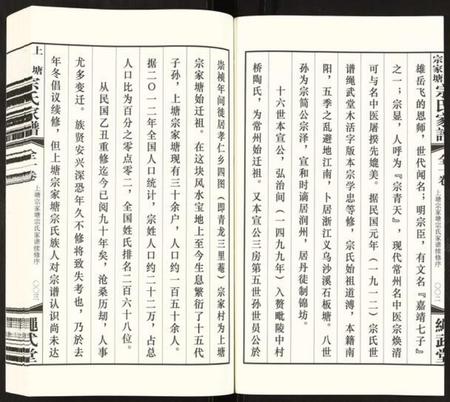 宗家塘宗氏家譜
全一卷
上塘宗家塘宗氏家谱续修序
〇〇二
繩武堂
雄岳飞的恩师，世代闻名；明宗臣，有文名『嘉靖七子』
之一；宗显，人呼为『宗青天』，现代常州名中医宗焕清
可与名中医屠揆先媲美。据民国元年（一九一二）宗氏世
谱绳武堂木活字版本宗学忠等修，宗氏始祖道溥，本籍南
阳，五季之乱避地江南，卜居浙江义乌沙溪石板塘。八世
孙为宗简公宗泽，宣和时谪居润州，居丹徒制锦坊。
十六世本宣公，弘治间（一四九九年）入赘毗陵中村
桥陶氏，为常州始迁祖。又本宣公三房第五世孙世员公於
崇祯年间徙居孝仁乡四图（即青龙三里菴）宗家村为上塘
宗家塘始迁祖。在这块风水宝地上至今生息繁衍了十五代
子孙，上塘宗家塘现有三十余户，人口约一百五十余人。
据二〇一二年全国人口统计，宗姓人口约二十二万，占总
人口比为百分之零点零二，全国姓氏排名二百六十八位。
从民国乙丑重修迄今已阅九十年矣，沧桑历劫，人事
尤多变迁。族贤安兴深恐年久不修将致失考也，乃於去
年冬倡议续修，但上塘宗家塘宗氏族人对宗谱认识尚未达
上塘宗氏家譜
全一卷
上塘宗家塘宗氏家谱续修序
〇〇三
繩武堂